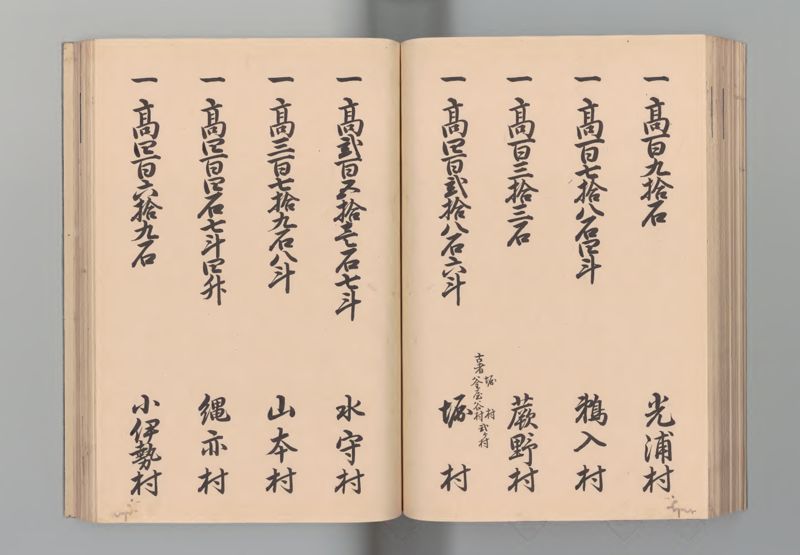 一 高百九拾石 光浦村
一 高百七拾八石四斗 鵜入村
一 高百三拾三石 蕨野村
一 高四百弐拾八石六斗 堀村
古者 堀村 釜屋谷村 弐ケ村
一 高弐百五拾壱石七斗 水守村
一 高三百七拾九石八斗 山本村
一 高四百四石七斗四升 縄亦村
一 高四百六拾九石 小伊勢村